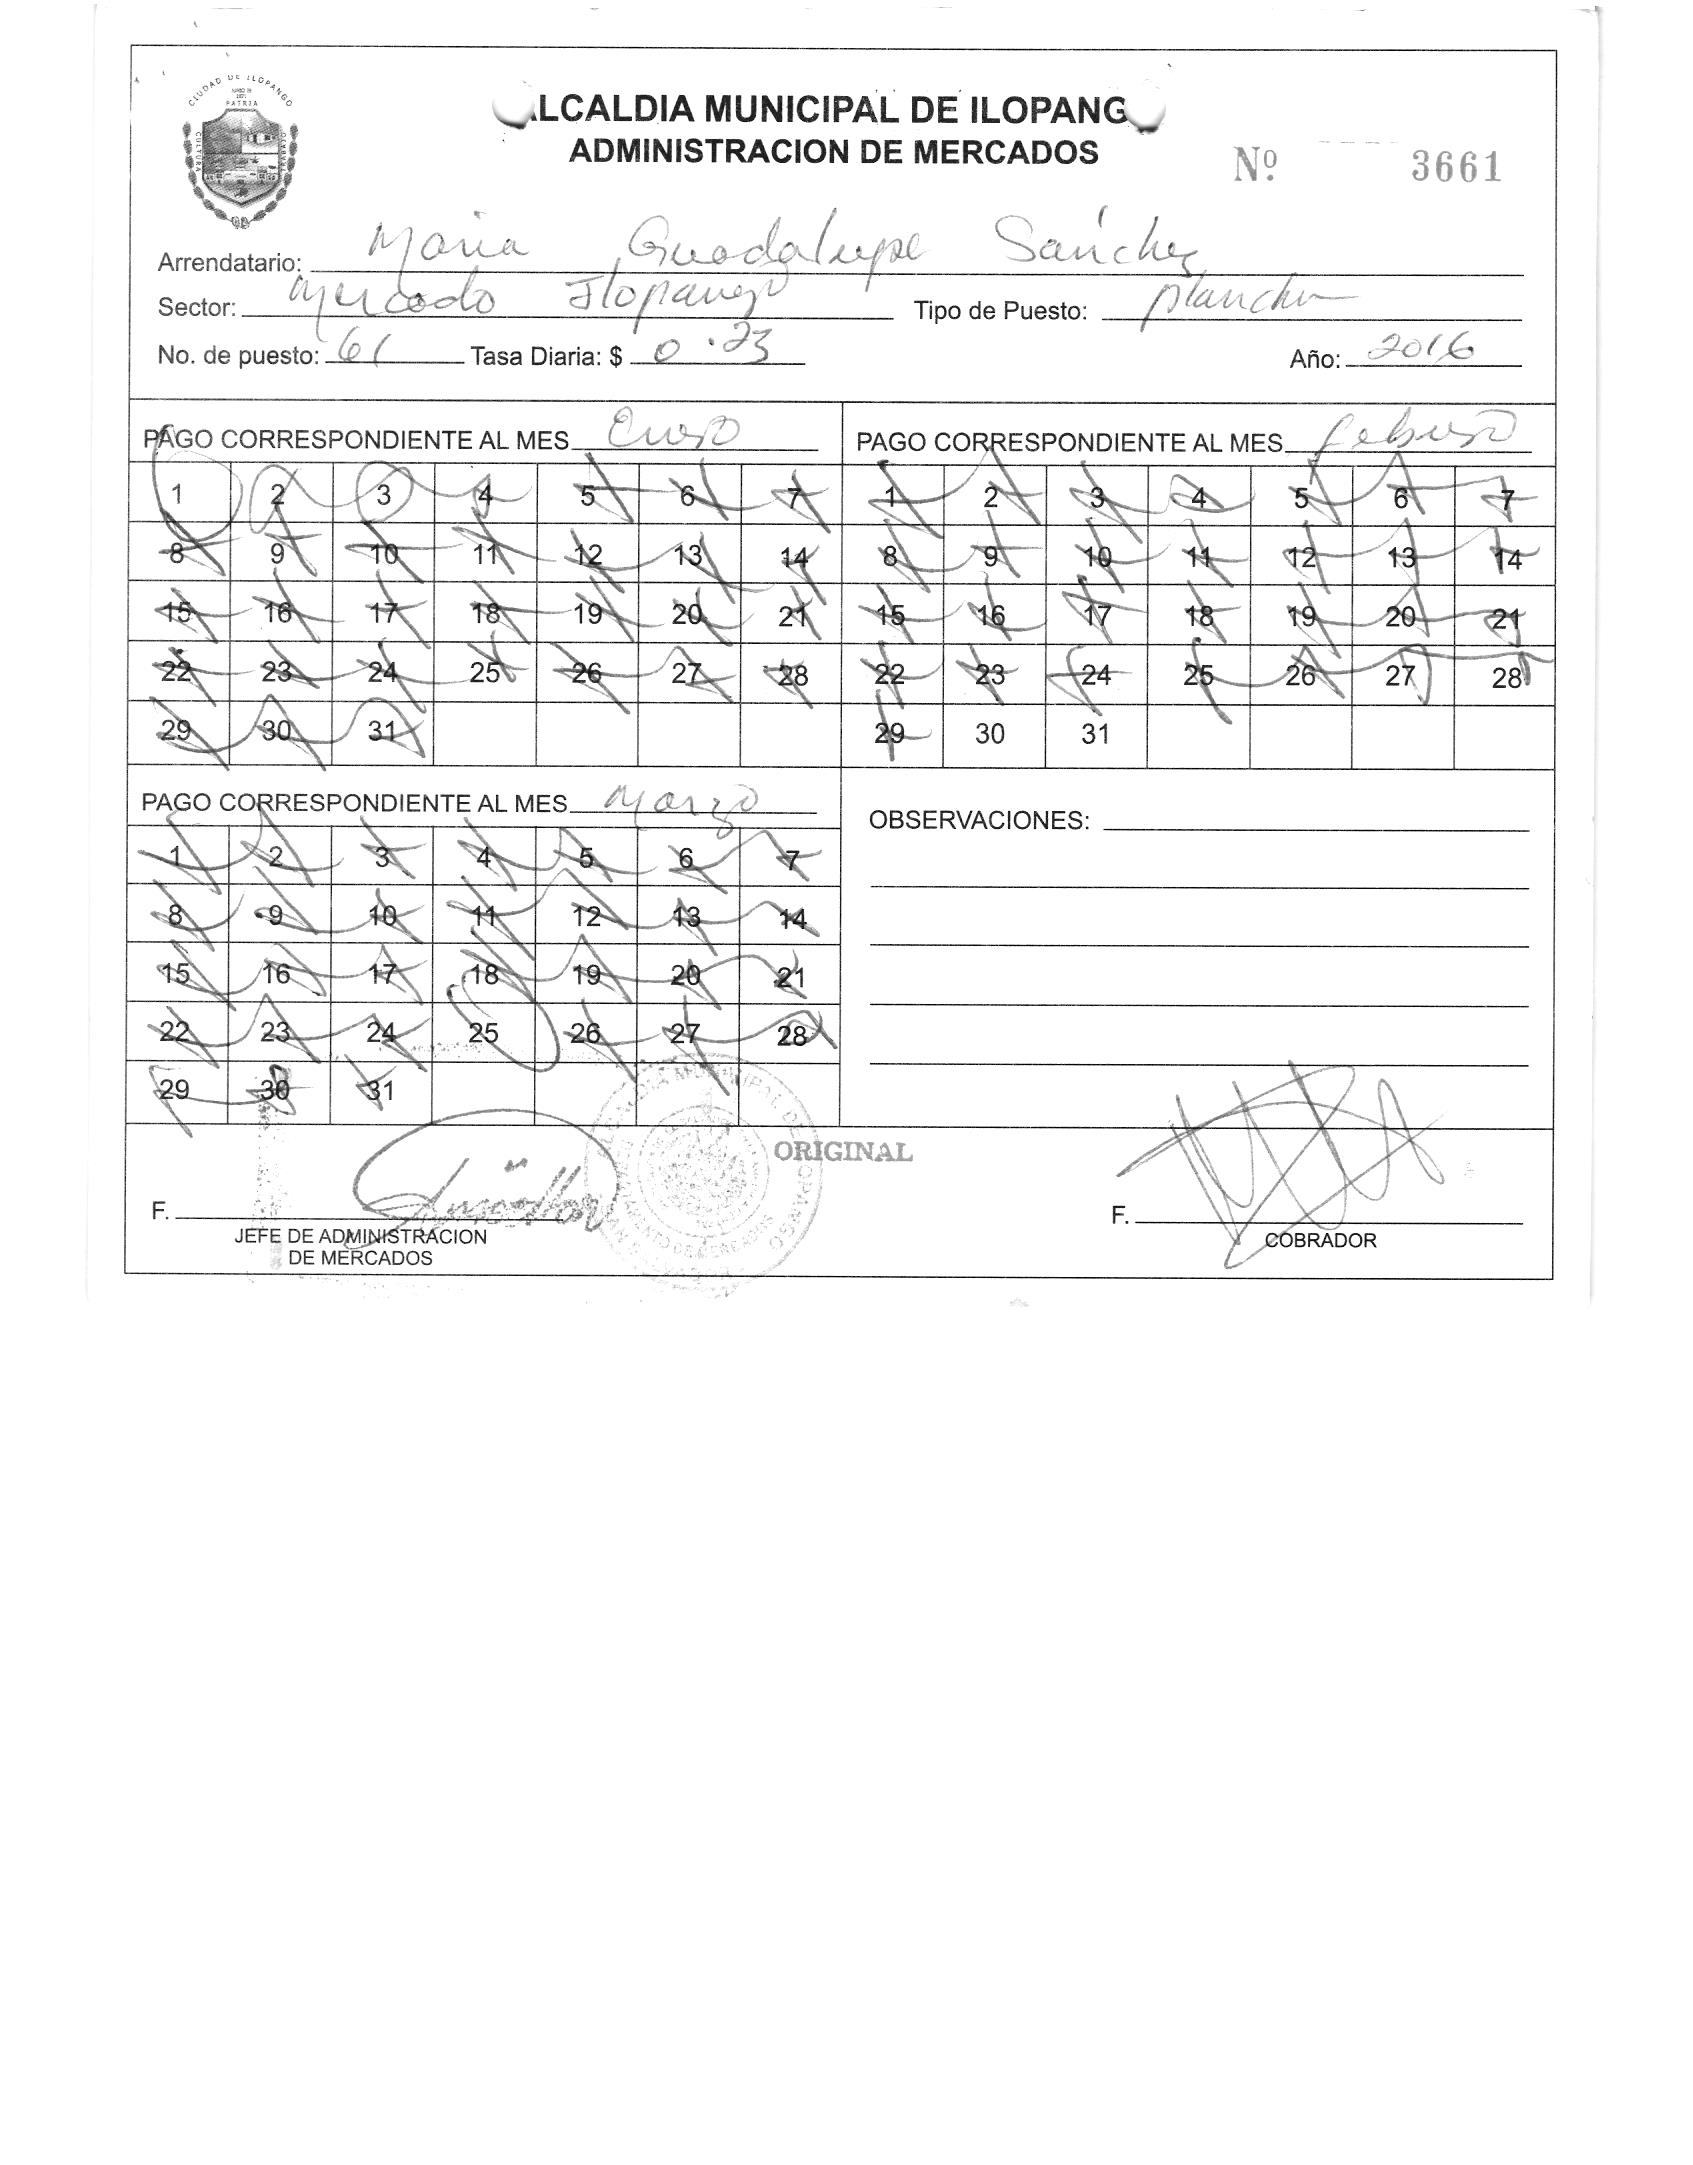 CIUDAD DE ILOPANGO
PATRIA
CULTURA
LCALDIA MUNICIPAL DE ILOPANG
ADMINISTRACION DE MERCADOS
Nº 3661
Arrendatario: Maria Guadalupe Sánchez
Sector: Mercado Ilopango Tipo de Puesto: plancha
No. de puesto: 61 Tasa Diaria: $ 0.23 Año: 2016
PAGO CORRESPONDIENTE AL MES Enero
1 2 3 4 5 6 7
8 9 10 11 12 13 14
15 16 17 18 19 20 21
22 23 24 25 26 27 28
29 30 31
PAGO CORRESPONDIENTE AL MES febrero
1 2 3 4 5 6 7
8 9 10 11 12 13 14
15 16 17 18 19 20 21
22 23 24 25 26 27 28
29 30 31
PAGO CORRESPONDIENTE AL MES Marzo
1 2 3 4 5 6 7
8 9 10 11 12 13 14
15 16 17 18 19 20 21
22 23 24 25 26 27 28
29 30 31
OBSERVACIONES:
ORIGINAL
F.
JEFE DE ADMINISTRACION
DE MERCADOS
F.
COBRADOR